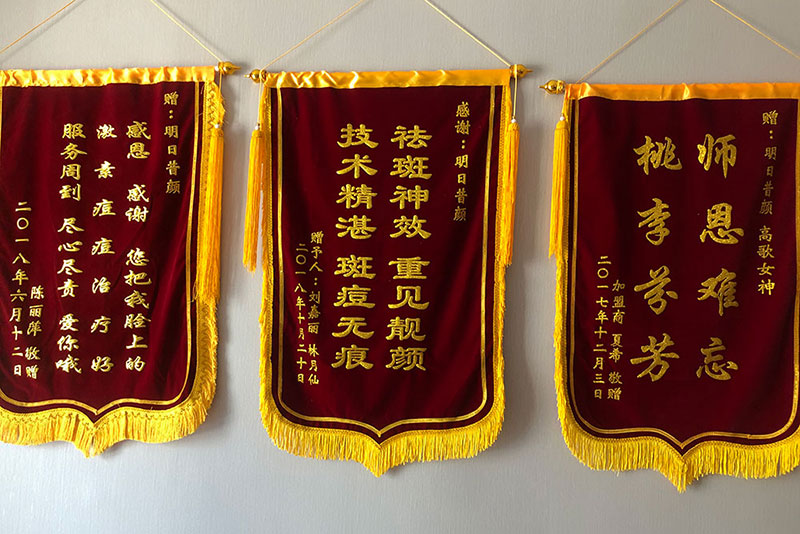 赠：明日昔颜
感恩 感谢 您把我脸上的
激素痘痘治疗好
服务周到 尽心尽责 爱你哦
陈丽萍 敬赠
二〇一八年六月十二日
感谢：明日昔颜
祛斑神效 重见靓颜
技术精湛 斑痘无痕
赠予人：刘嘉丽 林月仙
二〇一八年十月二十日
赠：明日昔颜 高歌女神
师恩难忘
桃李芬芳
加盟商 夏希 敬赠
二〇一七年十二月三日